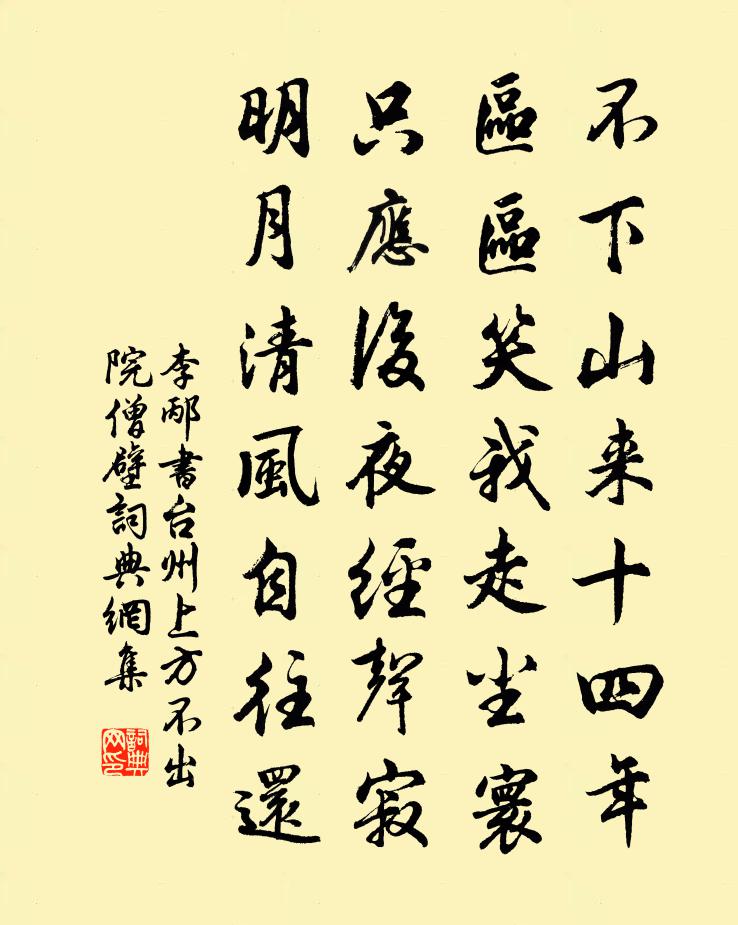 不下山来十四年
區區笑我走尘寰
只應後夜經聲寂
明月清風自往還
李邴書台州上方不出
院僧壁詞典網集
詞典
网印